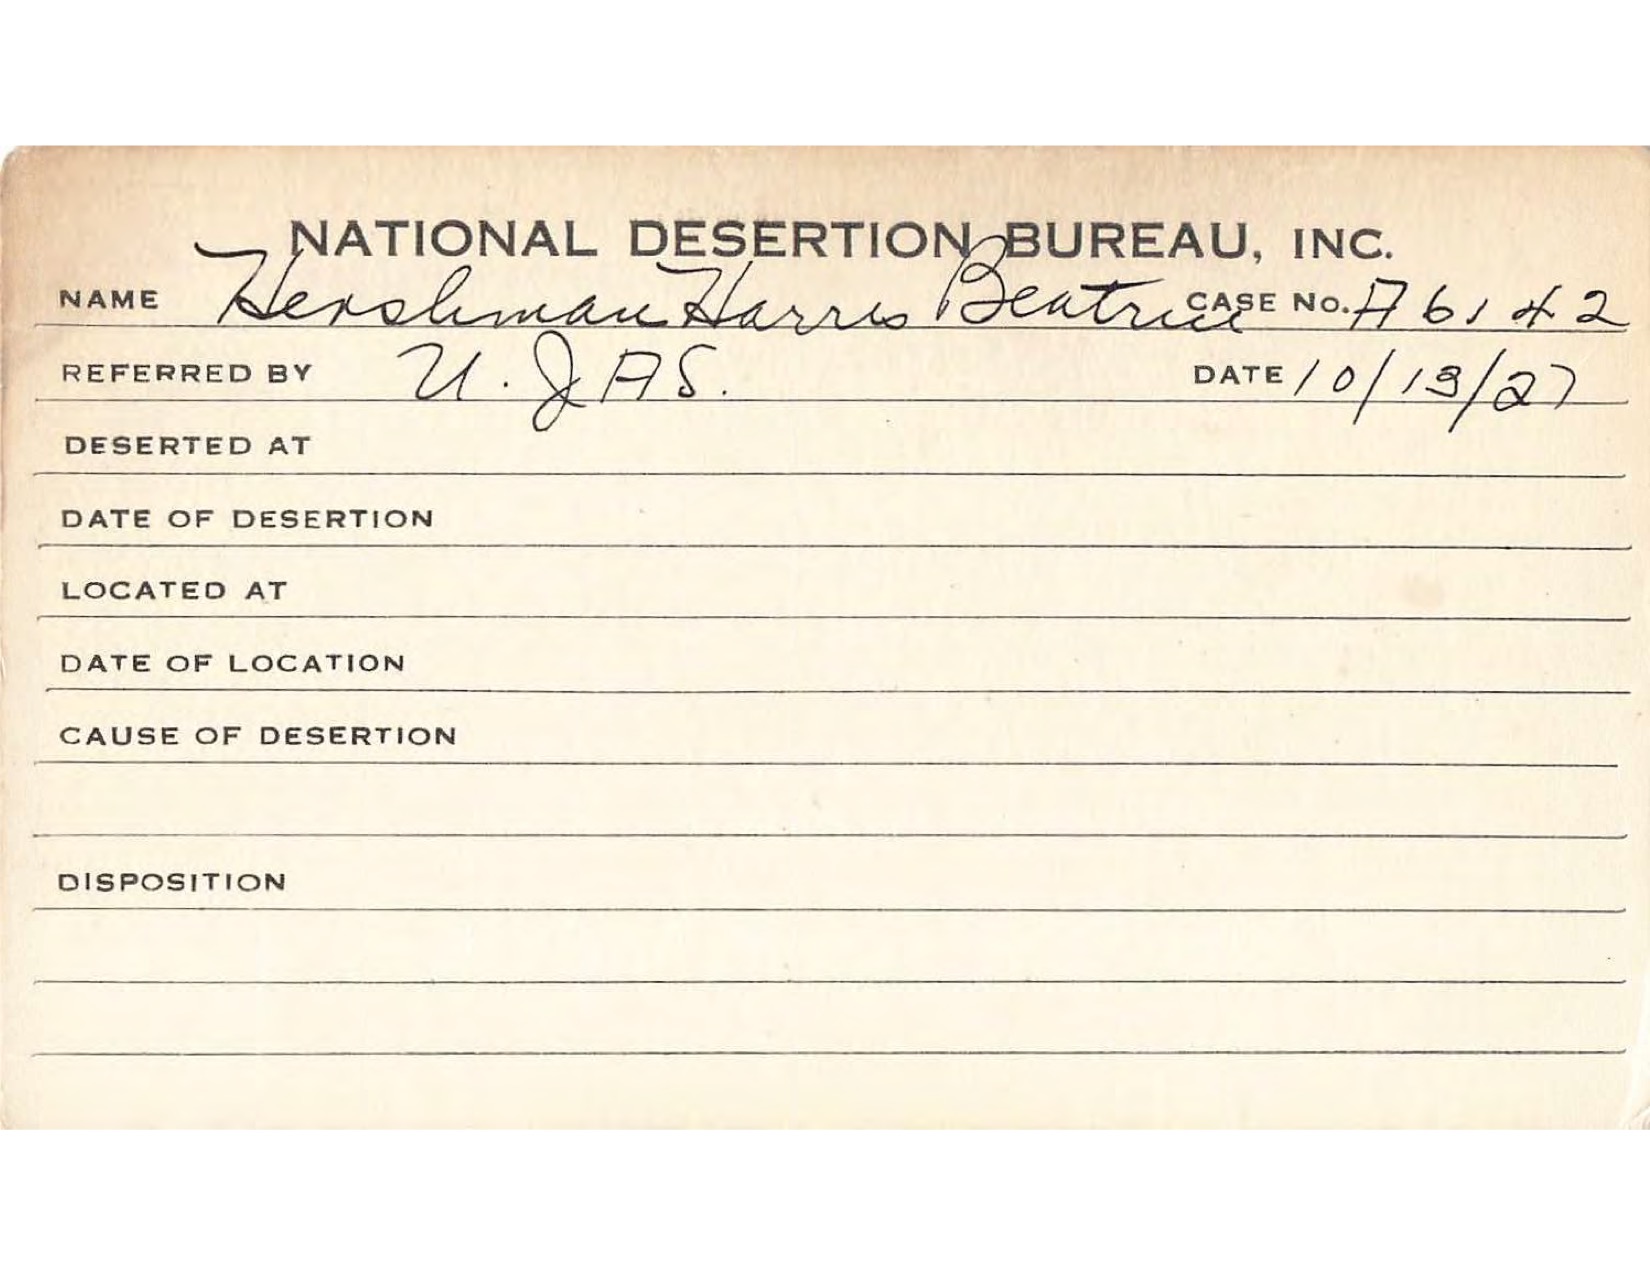 NATIONAL DESERTION BUREAU, INC.
NAME Hershman Harris Beatrice CASE No. A6142
REFERRED BY U. J A S. DATE 10/13/27
DESERTED AT
DATE OF DESERTION
LOCATED AT
DATE OF LOCATION
CAUSE OF DESERTION
DISPOSITION